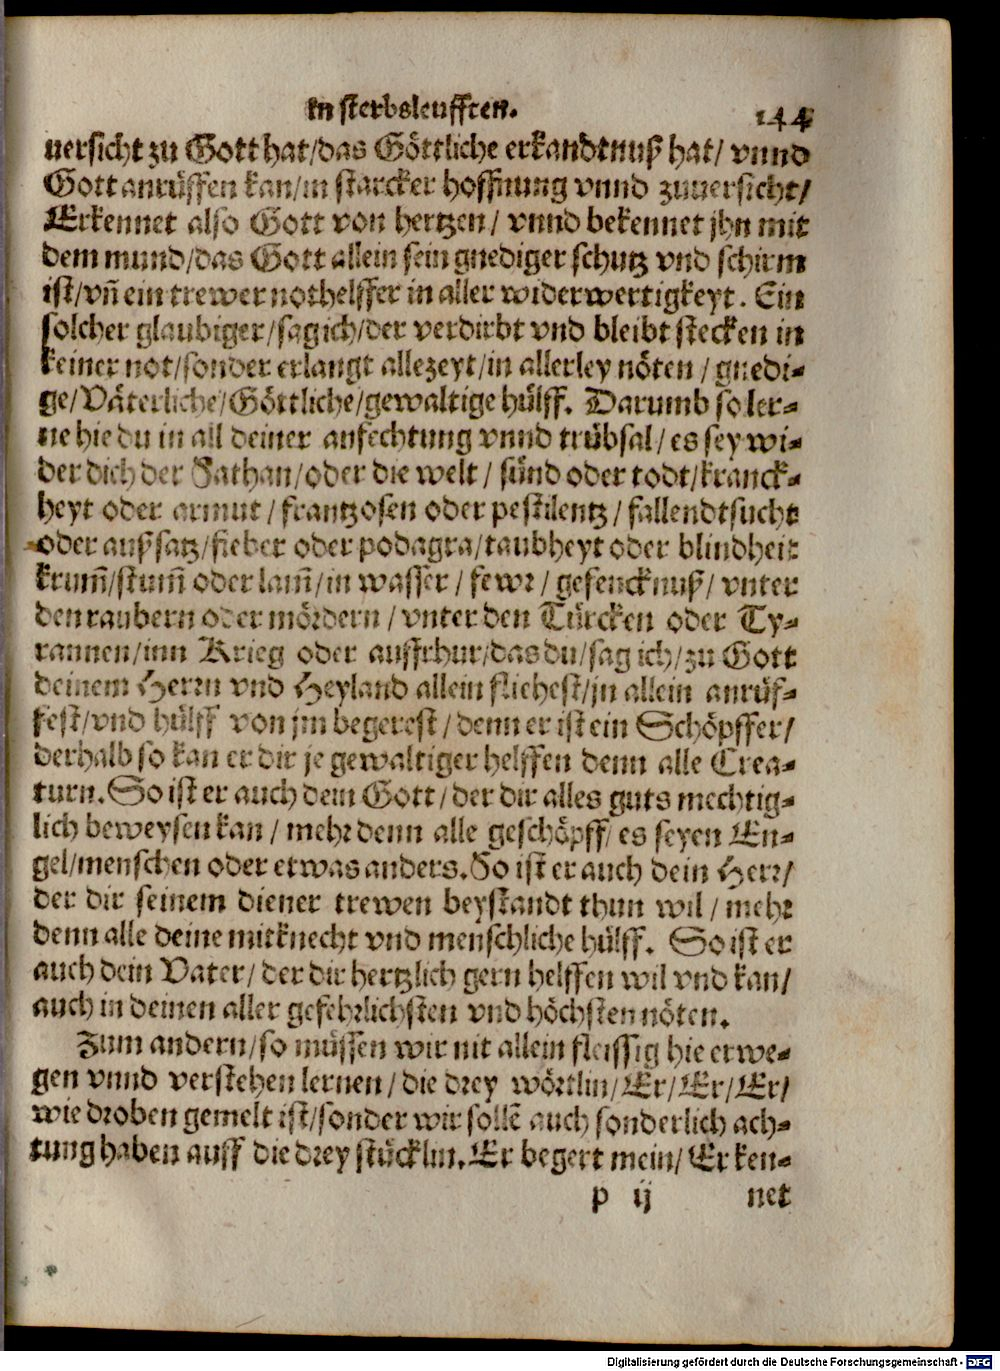 In sterbsleufften.
144
uersicht zu Gott hat/das Göttliche erkandtnuß hat/ vnnd
Gott anrüffen kan/in starcker hoffnung vnnd zuuersicht/
Erkennet also Gott von hertzen/ vnnd bekennet jhn mit
dem mund/das Gott allein sein gnediger schutz vnd schirm
ist/vñ ein trewer nothelffer in aller widerwertigkeyt. Ein
solcher glaubiger/sag ich/der verdirbt vnd bleibt stecken in
keiner not/sonder erlangt allezeyt/in allerley nöten / gnedi-
ge/Väterliche/Göttliche/gewaltige hülff. Darumb so ler-
ne hie du in all deiner anfechtung vnnd trübsal/ es sey wi-
der dich der Sathan/oder die welt / sünd oder todt/kranck-
heyt oder armut / frantzosen oder pestilentz / fallendtsucht
oder außsatz/fieber oder podagra/taubheyt oder blindheit
krum̃/stum̃ oder lam̃/in wasser / fewr / gefencknuß/ vnter
den raubern oder mördern / vnter den Türcken oder Ty-
rannen/inn Krieg oder auffrhur/das du/sag ich/zu Gott
deinem Herrn vnd Heyland allein fliehest/jn allein anrüf-
fest/vnd hülff von jm begerest / denn er ist ein Schöpffer/
derhalb so kan er dir je gewaltiger helffen denn alle Crea-
turn. So ist er auch dein Gott / der dir alles guts mechtig-
lich beweysen kan / mehr denn alle geschöpff/ es seyen En-
gel/menschen oder etwas anders. So ist er auch dein Herr/
der dir seinem diener trewen beystandt thun wil / mehr
denn alle deine mitknecht vnd menschliche hülff. So ist er
auch dein Vater/ der dir hertzlich gern helffen wil vnd kan/
auch in deinen aller gefehrlichsten vnd höchsten nöten.
Zum andern/so müssen wir nit allein fleissig hie erwe-
gen vnnd verstehen lernen / die drey wörtlin/ Er/ Er/ Er/
wie droben gemelt ist/sonder wir sollẽ auch sonderlich ach-
tung haben auff die drey stücklin. Er begert mein/ Er ken-
p ij net
Digitalisierung gefördert durch die Deutsche Forschungsgemeinschaft - DFG